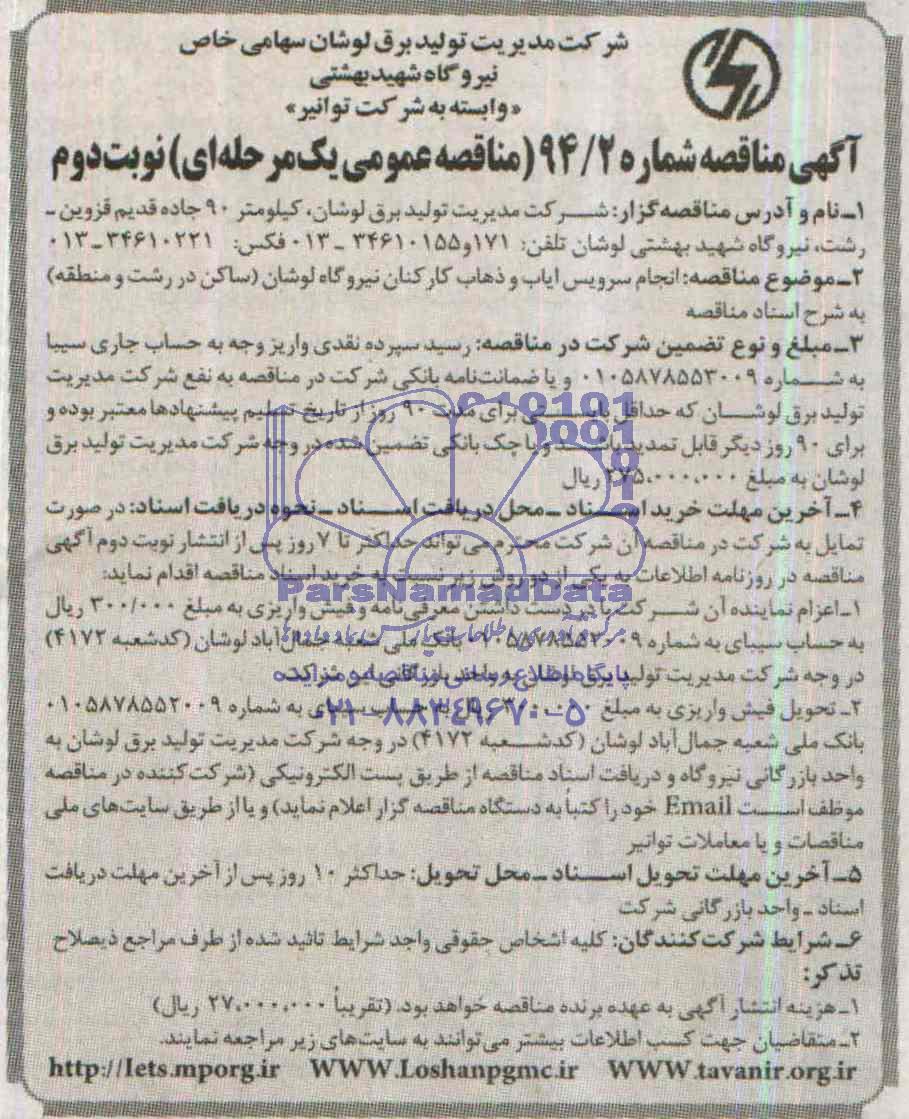 شرکت مدیریت تولید برق لوشان سهامی خاص
نیروگاه شهید بهشتی
«وابسته به شرکت توانیر»
آگهی مناقصه شماره ۹۴/۲ (مناقصه عمومی یک مرحله‌ای) نوبت دوم
۱ـ نام و آدرس مناقصه گزار: شرکت مدیریت تولید برق لوشان، کیلومتر ۹۰ جاده قدیم قزوین ـ
رشت، نیروگاه شهید بهشتی لوشان تلفن: ۱۷۱و۳۴۶۱۰۱۵۵ ـ ۰۱۳ فکس: ۳۴۶۱۰۲۲۱ ـ ۰۱۳
۲ـ موضوع مناقصه: انجام سرویس ایاب و ذهاب کارکنان نیروگاه لوشان (ساکن در رشت و منطقه)
به شرح اسناد مناقصه
۳ـ مبلغ و نوع تضمین شرکت در مناقصه: رسید سپرده نقدی واریز وجه به حساب جاری سیبا
به شماره ۰۱۰۵۸۷۸۵۵۳۰۰۹ و یا ضمانت‌نامه بانکی شرکت در مناقصه به نفع شرکت مدیریت
تولید برق لوشان که حداقل بایستی برای مدت ۹۰ روز از تاریخ تسلیم پیشنهادها معتبر بوده و
برای ۹۰ روز دیگر قابل تمدید باشد و یا چک بانکی تضمین شده در وجه شرکت مدیریت تولید برق
لوشان به مبلغ ۲۷۵،۰۰۰،۰۰۰ ریال
۴ـ آخرین مهلت خرید اسناد ـ محل دریافت اسناد ـ نحوه دریافت اسناد: در صورت
تمایل به شرکت در مناقصه آن شرکت محترم می‌تواند حداکثر تا ۷ روز پس از انتشار نوبت دوم آگهی
مناقصه در روزنامه اطلاعات به یکی از دو روش زیر نسبت به خرید اسناد مناقصه اقدام نماید:
۱ـ اعزام نماینده آن شرکت با در دست داشتن معرفی‌نامه و فیش واریزی به مبلغ ۳۰۰/۰۰۰ ریال
به حساب سیبای به شماره ۰۱۰۵۸۷۸۵۵۲۰۰۹ بانک ملی شعبه جمال آباد لوشان (کدشعبه ۴۱۷۲)
در وجه شرکت مدیریت تولید برق لوشان به واحد بازرگانی این شرکت
۲ـ تحویل فیش واریزی به مبلغ ریال به حساب سیبای به شماره ۰۱۰۵۸۷۸۵۵۲۰۰۹
بانک ملی شعبه جمال‌آباد لوشان (کدشعبه ۴۱۷۲) در وجه شرکت مدیریت تولید برق لوشان به
واحد بازرگانی نیروگاه و دریافت اسناد مناقصه از طریق پست الکترونیکی (شرکت‌کننده در مناقصه
موظف است Email خود را کتباً به دستگاه مناقصه گزار اعلام نماید) و یا از طریق سایت‌های ملی
مناقصات و یا معاملات توانیر
۵ـ آخرین مهلت تحویل اسناد ـ محل تحویل: حداکثر ۱۰ روز پس از آخرین مهلت دریافت
اسناد ـ واحد بازرگانی شرکت
۶ـ شرایط شرکت‌کنندگان: کلیه اشخاص حقوقی واجد شرایط تائید شده از طرف مراجع ذیصلاح
تذکر:
۱ـ هزینه انتشار آگهی به عهده برنده مناقصه خواهد بود. (تقریباً ۲۷،۰۰۰،۰۰۰ ریال)
۲ـ متقاضیان جهت کسب اطلاعات بیشتر می‌توانند به سایت‌های زیر مراجعه نمایند.
http://Iets.mporg.ir WWW.Loshanpgmc.ir WWW.tavanir.org.ir
ParsNamadData
پایگاه اطلاع رسانی مناقصه و مزایده
۰۲۱-۸۸۳۴۹۶۷۰-۵